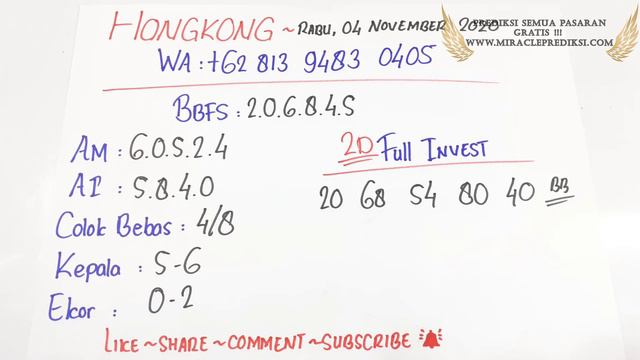 HONGKONG ~ RABU, 04 NOVEMBER 2020
PREDIKSI SEMUA PASARAN
GRATIS !!!
WWW.MIRACLEPREDIKSI.COM
WA : +62 813 9483 0405
BBFS : 2.0.6.8.4.5
AM : 6.0.5.2.4
AI : 5.8.4.0
Colok Bebas : 4/8
Kepala : 5-6
Ekor : 0-2
2D Full INVEST
20 68 54 80 40 BB
LIKE ~ SHARE ~ COMMENT ~ SUBSCRIBE